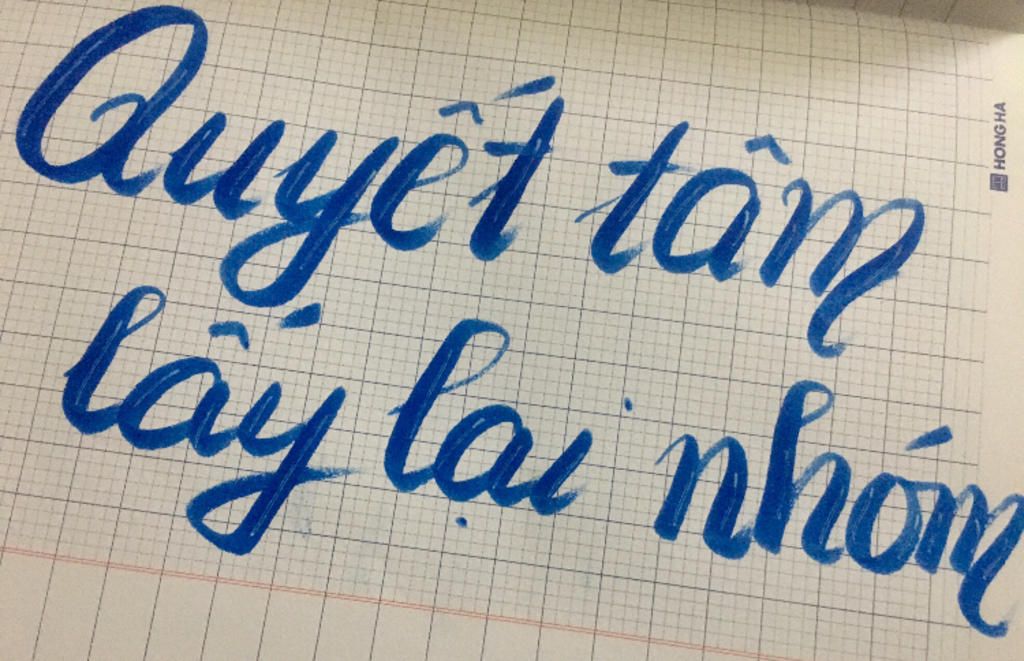 Quyết tâm
lấy lại nhóm
HONG HA